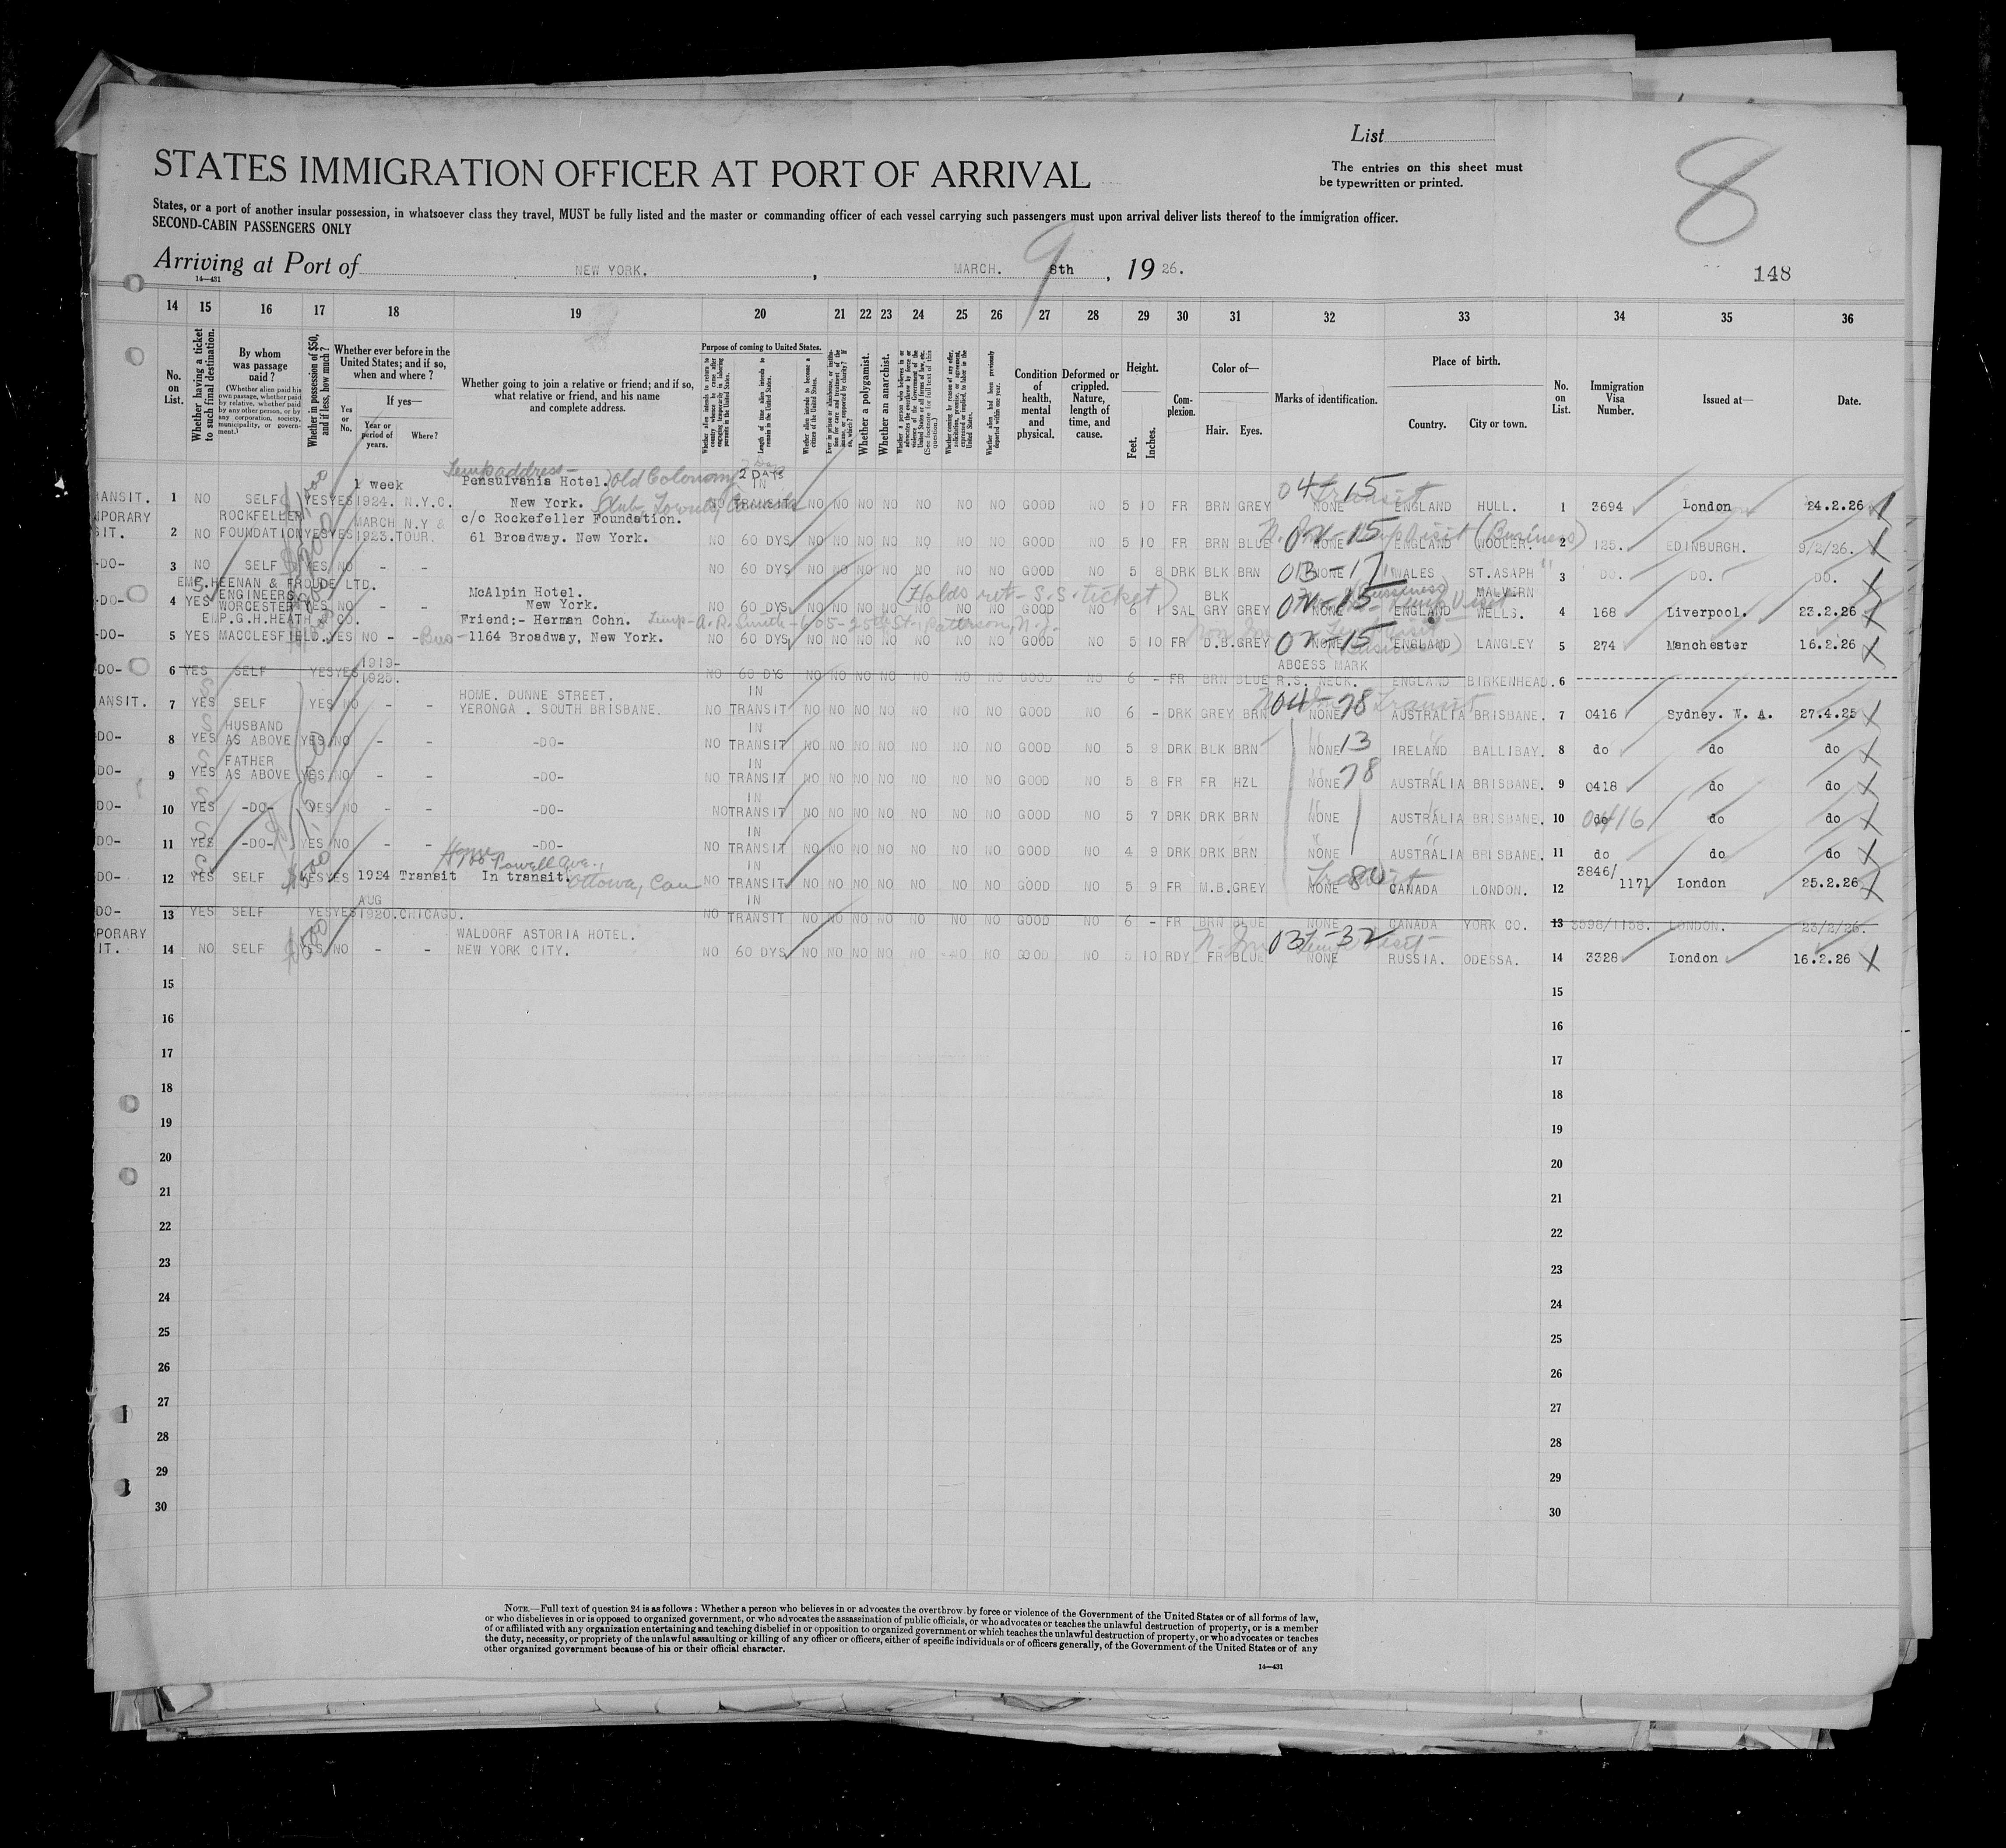 List
STATES IMMIGRATION OFFICER AT PORT OF ARRIVAL
The entries on this sheet must
be typewritten or printed.
8
States, or a port of another insular possession, in whatsoever class they travel, MUST be fully listed and the master or commanding officer of each vessel carrying such passengers must upon arrival deliver lists thereof to the immigration officer.
SECOND-CABIN PASSENGERS ONLY
Arriving at Port of NEW YORK. , MARCH. 9 8th , 19 26.
14—431
148
14 15 16 17 18 19 20 21 22 23 24 25 26 27 28 29 30 31 32 33 34 35 36
No. on List.
Whether having a ticket to such final destination.
By whom was passage paid?
(Whether alien paid his own passage, whether paid by relative, whether paid by any other person, or by any corporation, society, municipality, or government.)
Whether in possession of $50, and if less, how much?
Whether ever before in the United States; and if so, when and where?
Yes or No.
If yes—
Year or period of years.
Where?
Whether going to join a relative or friend; and if so, what relative or friend, and his name and complete address.
Purpose of coming to United States.
Length of time alien intends to remain in the United States.
Whether alien intends to become a citizen of the United States.
Whether a polygamist.
Whether an anarchist.
Condition of health, mental and physical.
Deformed or crippled. Nature, length of time, and cause.
Height.
Feet. Inches.
Complexion.
Color of—
Hair. Eyes.
Marks of identification.
Place of birth.
Country. City or town.
No. on List.
Immigration Visa Number.
Issued at—
Date.
Temp address — Pensulvania Hotel. Old Colony 2 DAYS
ANSIT. 1 NO SELF YES YES 1 week 1924. N.Y.C. New York. Club, NO IN TRANSIT NO NO NO NO NO NO GOOD NO 5 10 FR BRN GREY NONE 04-15 Transit ENGLAND HULL. 1 3694 London 24.2.26
PORARY SIT. 2 NO ROCKFELLER FOUNDATION YES YES MARCH 1923. N.Y & TOUR. c/o Rockefeller Foundation. 61 Broadway. New York. NO 60 DYS NO NO NO NO NO NO GOOD NO 5 10 FR BRN BLUE NONE Visit (Business) ENGLAND WOOLER. 2 125. EDINBURGH. 9/2/26.
-DO- 3 NO SELF YES NO - - NO 60 DYS NO NO NO NO NO NO GOOD NO 5 8 DRK BLK BRN NONE WALES ST.ASAPH 3 DO. DO. DO.
-DO- 4 YES EMP. HEENAN & FROUDE LTD. ENGINEERS WORCESTER YES NO McAlpin Hotel. New York. NO 60 DYS (Holds ret- S.S. ticket) NO NO NO NO NO NO GOOD NO 6 1 SAL BLK GRY GREY NONE Visit ENGLAND MALVERN WELLS. 4 168 Liverpool. 23.2.26
-DO- 5 YES EMP.G.H.HEATH & CO. MACCLESFIELD. YES NO - - Friend:- Herman Cohn. Bus -1164 Broadway, New York. NO 60 DYS NO NO NO NO NO NO GOOD NO 5 10 FR D.B. GREY NONE ENGLAND LANGLEY 5 274 Manchester 16.2.26
DO- 6 YES SELF YES YES 1919- 1925. NO 60 DYS NO NO NO NO NO NO GOOD NO 6 - FR BRN BLUE ABCESS MARK R.S. NECK. ENGLAND BIRKENHEAD. 6
ANSIT. 7 YES SELF YES NO - - HOME. DUNNE STREET. YERONGA . SOUTH BRISBANE. NO IN TRANSIT NO NO NO NO NO NO GOOD NO 6 - DRK GREY BRN NONE 04-78 Transit AUSTRALIA BRISBANE. 7 0416 Sydney. W. A. 27.4.25
DO- 8 YES HUSBAND AS ABOVE YES NO - - -DO- NO IN TRANSIT NO NO NO NO NO NO GOOD NO 5 9 DRK BLK BRN NONE 13 IRELAND BALLIBAY. 8 do do do
DO- 9 YES FATHER AS ABOVE YES NO - - -DO- NO IN TRANSIT NO NO NO NO NO NO GOOD NO 5 8 FR FR HZL NONE 78 AUSTRALIA BRISBANE. 9 0418 do do
DO- 10 YES -DO- YES NO - - -DO- NO IN TRANSIT NO NO NO NO NO NO GOOD NO 5 7 DRK DRK BRN NONE AUSTRALIA BRISBANE. 10 do 0416 do do
DO- 11 YES -DO- YES NO - - -DO- NO IN TRANSIT NO NO NO NO NO NO GOOD NO 4 9 DRK DRK BRN NONE AUSTRALIA BRISBANE. 11 do do do
DO- 12 YES SELF YES YES 1924 Transit In transit. Home Powell Ave., Ottowa, Can NO IN TRANSIT NO NO NO NO NO NO GOOD NO 5 9 FR M.B. GREY NONE 80 Transit CANADA LONDON. 12 3846/ 1171 London 25.2.26
DO- 13 YES SELF YES YES AUG 1920. CHICAGO. NO IN TRANSIT NO NO NO NO NO NO GOOD NO 6 - FR BRN BLUE NONE CANADA YORK CO. 13 3598/1158. LONDON. 23/2/26.
PORARY IT. 14 NO SELF YES NO - - WALDORF ASTORIA HOTEL. NEW YORK CITY. NO 60 DYS NO NO NO NO NO NO GOOD NO 5 10 RDY FR BLUE NONE RUSSIA. ODESSA. 14 3328 London 16.2.26
15 15
16 16
17 17
18 18
19 19
20 20
21 21
22 22
23 23
24 24
25 25
26 26
27 27
28 28
29 29
30 30
NOTE.—Full text of question 24 is as follows: Whether a person who believes in or advocates the overthrow by force or violence of the Government of the United States or of all forms of law,
or who disbelieves in or is opposed to organized government, or who advocates the assassination of public officials, or who advocates or teaches the unlawful destruction of property, or is a member
of or affiliated with any organization entertaining and teaching disbelief in or opposition to organized government or which teaches the unlawful destruction of property, or who advocates or teaches
the duty, necessity, or propriety of the unlawful assaulting or killing of any officer or officers, either of specific individuals or of officers generally, of the Government of the United States or of any
other organized government because of his or their official character.
14—431